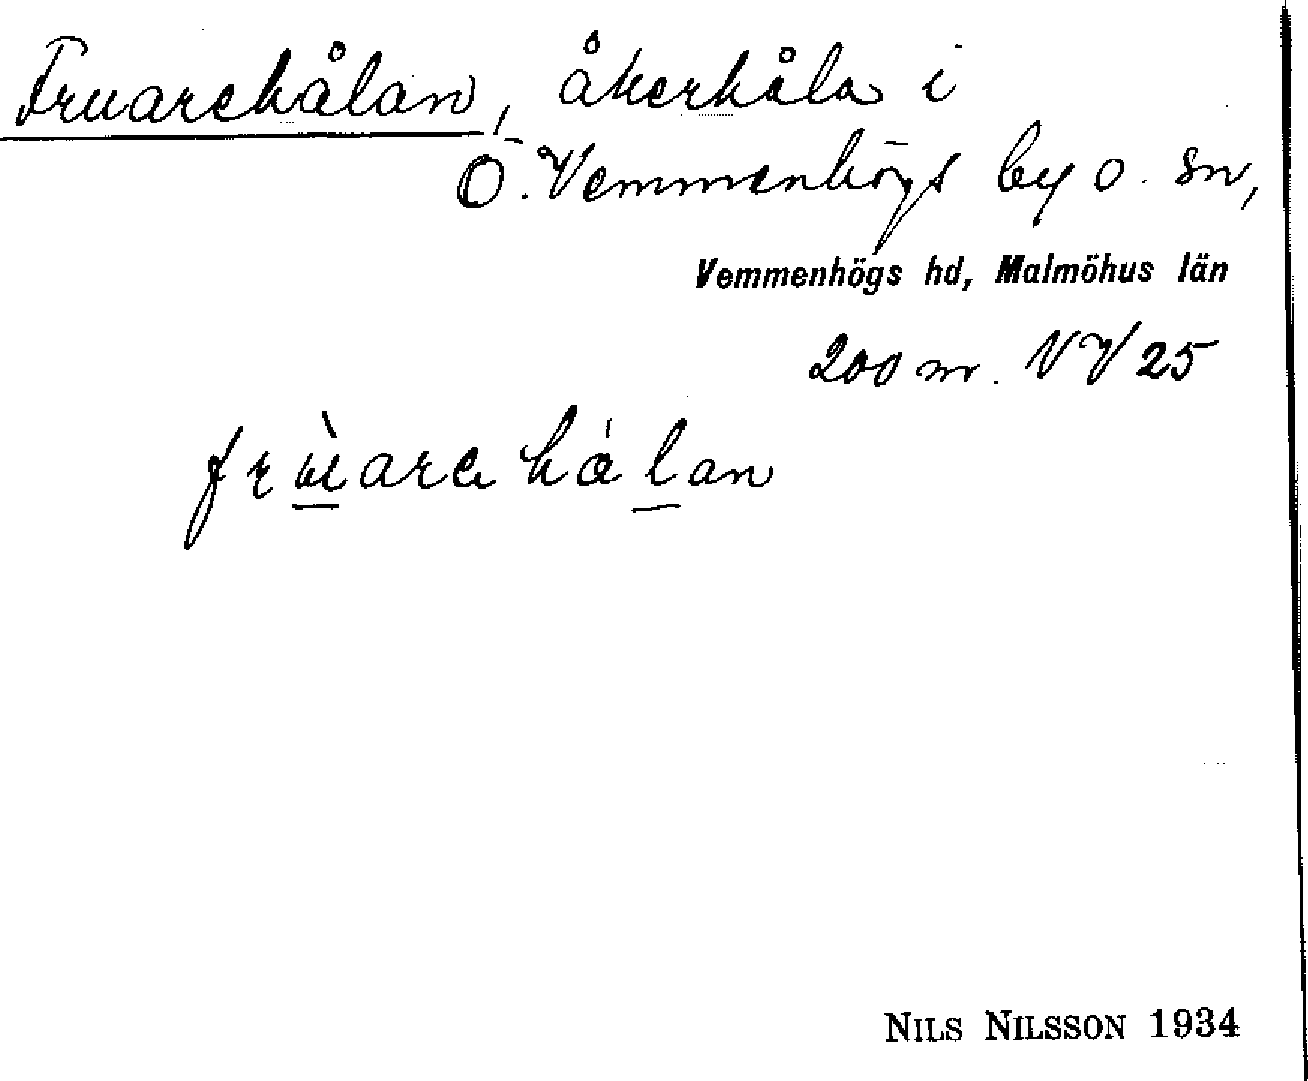 Fruarehålan, åkerhåla i
Ö. Vemmenhögs by o. sn,
Vemmenhögs hd, Malmöhus län
200 m. NV 25
frùare hålan
NILS NILSSON 1934